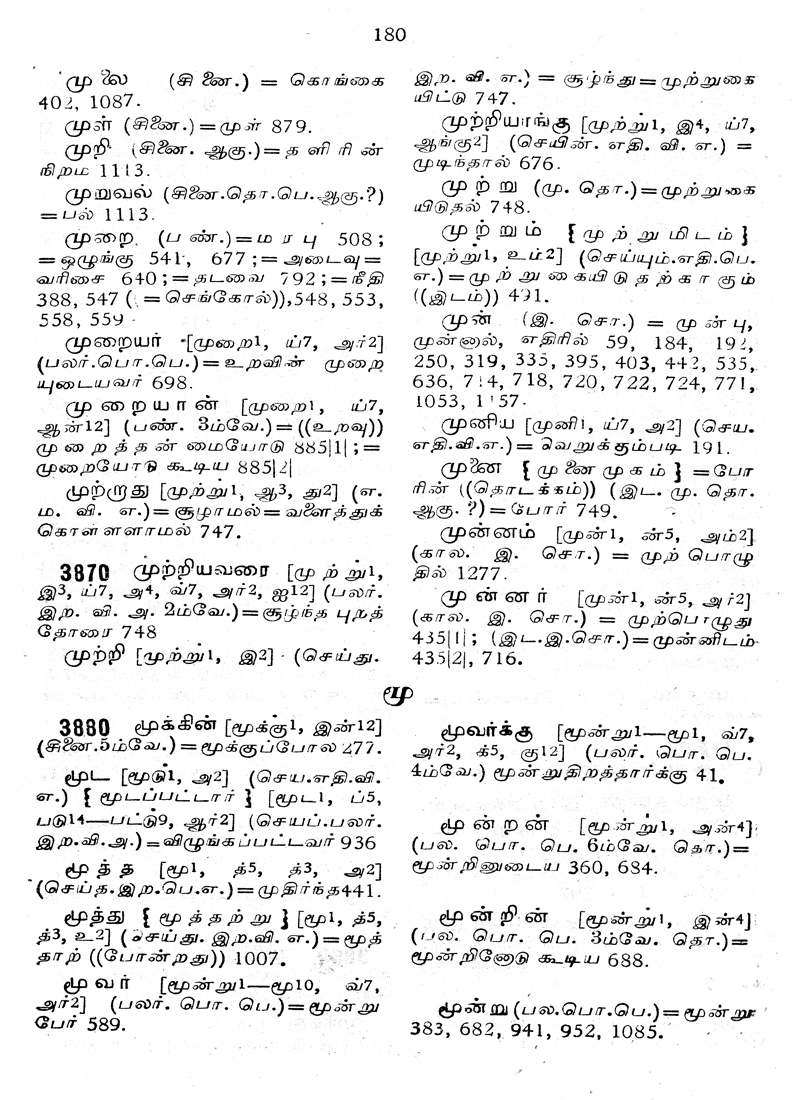 180
முலை (சினை.) = கொங்கை
402, 1087.
முள் (சினை.)=முள் 879.
முறி (சினை. ஆகு.)=தளிரின்
நிறம 1113.
முறுவல் (சினை.தொ.பெ.ஆகு.?)
=பல் 1113.
முறை (பண்.)=மரபு 508;
=ஒழுங்கு 541, 677;=அடைவு=
வரிசை 640;=தடவை 792;=நீதி
388, 547 (=செங்கோல்)),548, 553,
558, 559
முறையர் [முறை1, ய்7, அர்2]
(பலர்.பொ.பெ.)=உறவின் முறை
யுடையவர் 698.
முறையான் [முறை1, ய்7,
ஆன்12] (பண். 3ம்வே.)=((உறவு))
முறைத்தன்மையோடு 885|1|;=
முறையோடு கூடிய 885|2|
முற்றாது [முற்று1, ஆ3, து2] (எ.
ம. வி. எ.)=சூழாமல்=வளைத்துக்
கொள்ளாமல் 747.
3870 முற்றியவரை [முற்று1,
இ3, ய்7, அ4, வ்7, அர்2, ஐ12] (பலர்.
இற. வி. அ. 2ம்வே.)=சூழ்ந்த புறத்
தோரை 748
முற்றி [முற்று1, இ2] (செய்து.
இற. வி. எ.) = சூழ்ந்து=முற்றுகை
யிட்டு 747.
முற்றியாங்கு [முற்று1, இ4, ய்7,
ஆங்கு2] (செயின். எதி. வி. எ.) =
முடிந்தால் 676.
முற்று (மு. தொ.)=முற்றுகை
யிடுதல் 748.
முற்றும் {முற்றுமிடம்}
[முற்று1, உம்2] (செய்யும்.எதி.பெ.
எ.)=முற்றுகையிடுதற்காகும்
((இடம்)) 491.
முன் (இ. சொ.) = முன்பு,
முன்னால், எதிரில் 59, 184, 192,
250, 319, 335, 395, 403, 442, 535,
636, 714, 718, 720, 722, 724, 771,
1053, 1157.
முனிய [முனி1, ய்7, அ2] (செய.
எதி.வி.எ.)= வெறுக்கும்படி 191.
முனை {முனைமுகம்} =போ
ரின் ((தொடக்கம்)) (இட. மு. தொ.
ஆகு. ?)=போர் 749.
முன்னம் [முன்1, ன்5, அம்2]
(கால. இ. சொ.) = முற்பொழு
தில் 1277.
முன்னர் [முன்1, ன்5, அர்2]
(கால. இ. சொ.) = முற்பொழுது
435|1|; (இட.இ.சொ.)=முன்னிடம்
435|2|, 716.
மூ
3880 மூக்கின் [மூக்கு1, இன்12]
(சினை.5ம்வே.)=மூக்குப்போல 277.
மூட [மூடு1, அ2] (செய.எதி.வி.
எ.) {மூடப்பட்டார்} [மூட1, ப்5,
படு14—பட்டு9, ஆர்2] (செயப்.பலர்.
இற.வி.அ.)=விழுங்கப்பட்டவர் 936
மூத்த [மூ1, த்5, த்3, அ2]
(செய்த.இற.பெ.எ.)=முதிர்ந்த441.
மூத்து {மூத்தற்று} [மூ1, த்5,
த்3, உ2] (செய்து. இற.வி. எ.)=மூத்
தாற் ((போன்றது)) 1007.
மூவர் [மூன்று1—மூ10, வ்7,
அர்2] (பலர். பொ. பெ.)=மூன்று
பேர் 589.
மூவர்க்கு [மூன்று1—மூ1, வ்7,
அர்2, க்5, கு12] (பலர். பொ. பெ.
4ம்வே.) மூன்றுதிறத்தார்க்கு 41.
மூன்றன் [மூன்று1, அன்4]
(பல. பொ. பெ. 6ம்வே. தொ.)=
மூன்றினுடைய 360, 684.
மூன்றின் [மூன்று1, இன்4]
(பல. பொ. பெ. 3ம்வே. தொ.)=
மூன்றினோடு கூடிய 688.
மூன்று (பல.பொ.பெ.)=மூன்று
383, 682, 941, 952, 1085.